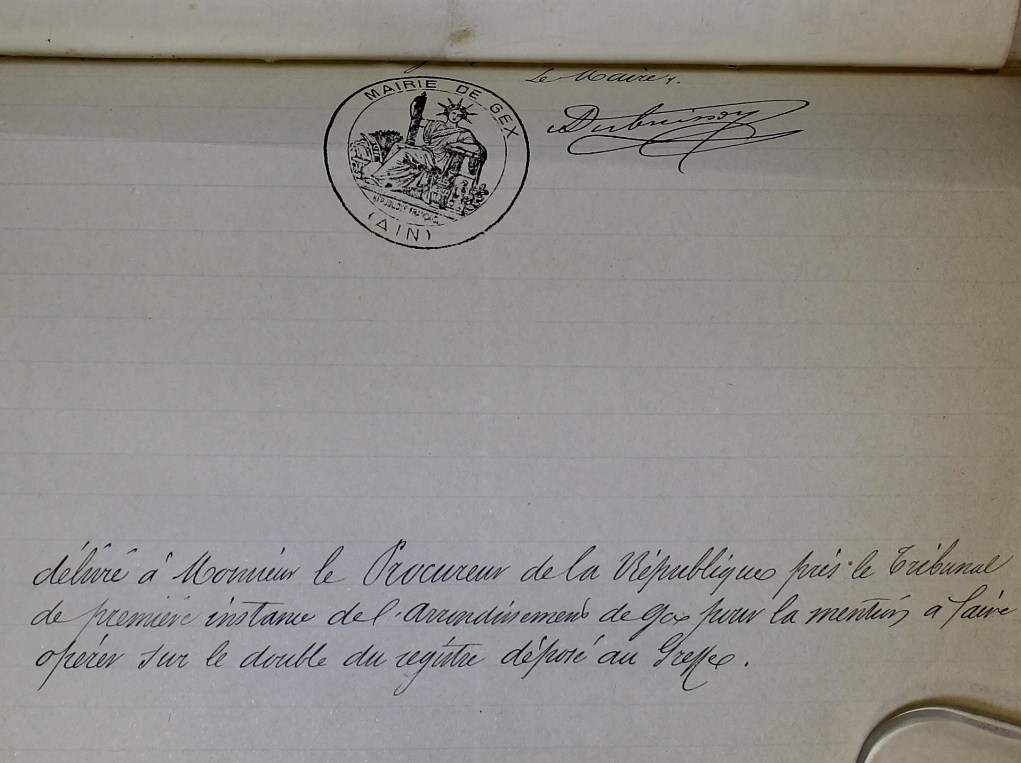 Le Maire,
Dubuisson
MAIRIE DE GEX
RÉPUBLIQUE FRANÇAISE
(AIN)
délivré à Monsieur le Procureur de la République près le Tribunal
de première instance de l'arrondissement de Gex pour la mention à faire
opérer sur le double du registre déposé au Greffe.